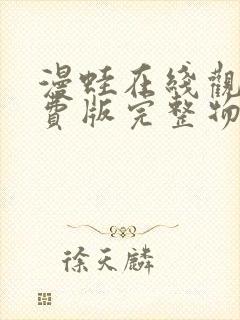 漫蛙在綫觀
費版完整物
徐天麟